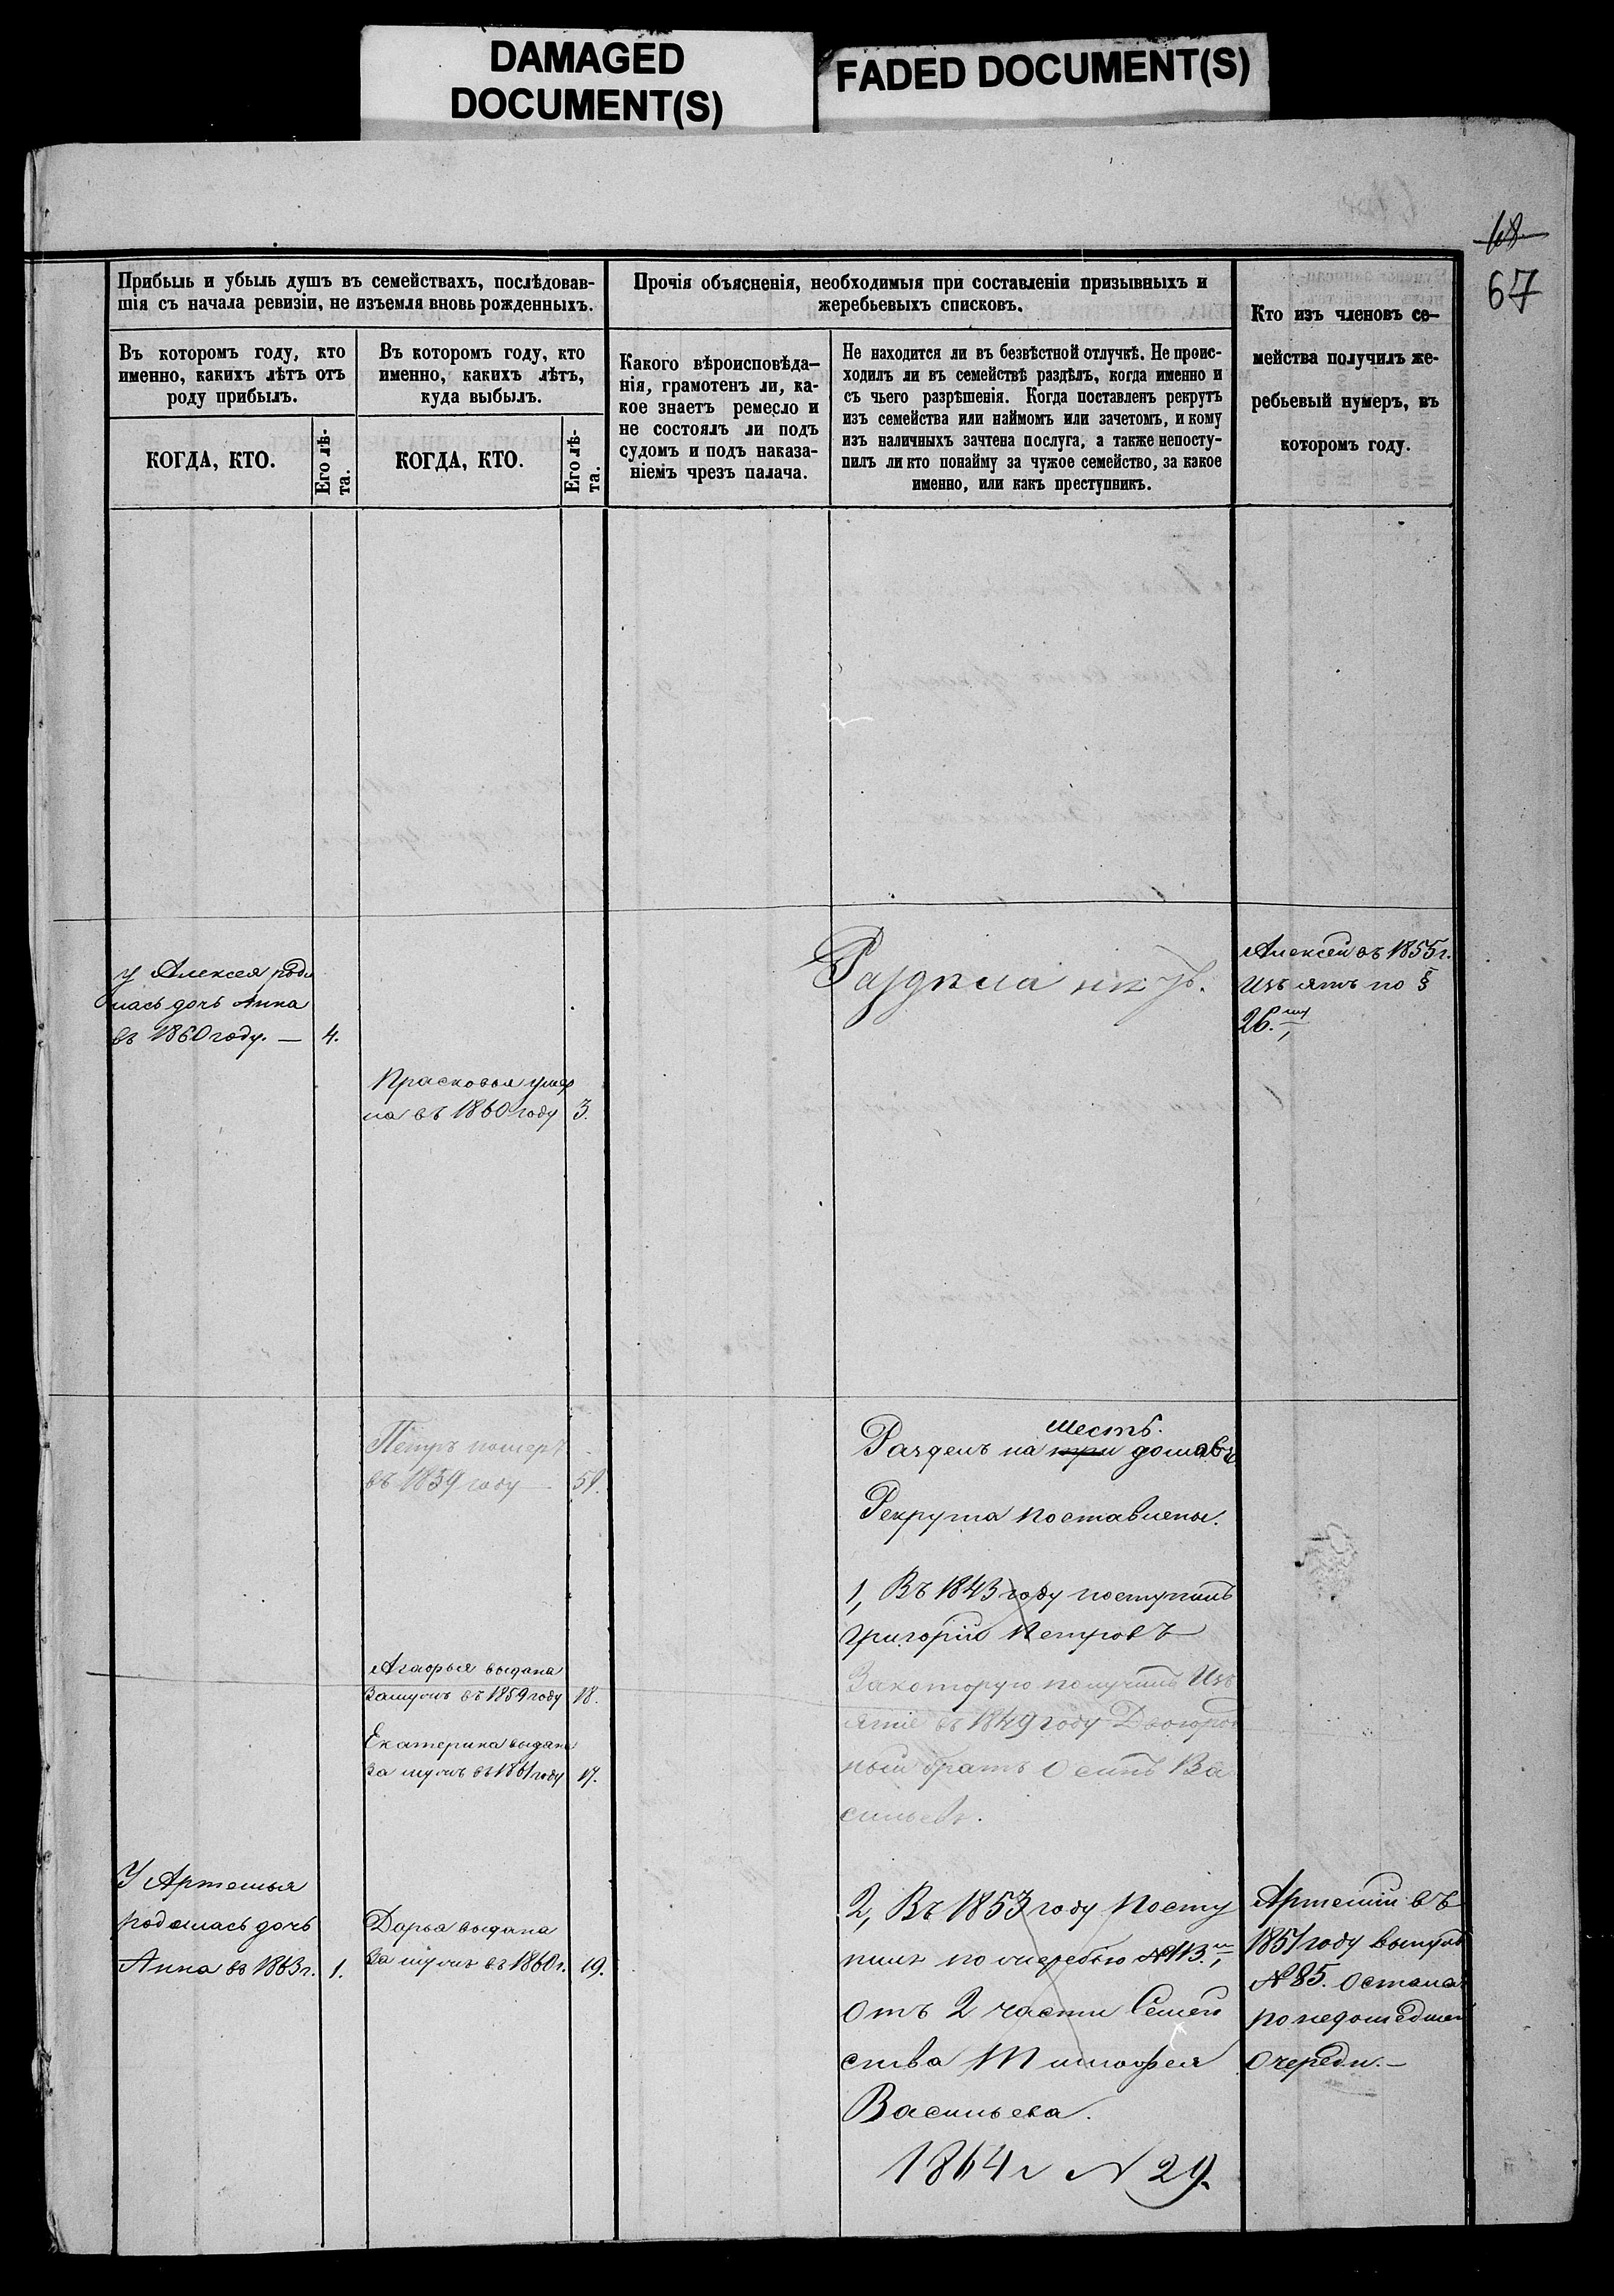 DAMAGED
DOCUMENT(S)
FADED DOCUMENT(S)
68
67
Прибыль и убыль душъ въ семействахъ, послѣдовав-
шія съ начала ревизіи, не изъемля вновь рожденныхъ.
Въ которомъ году, кто
именно, какихъ лѣтъ отъ
роду прибылъ.
КОГДА, КТО.
Его лѣ-
та.
Въ которомъ году, кто
именно, какихъ лѣтъ,
куда выбылъ.
КОГДА, КТО.
Его лѣ-
та.
Прочія объясненія, необходимыя при составленіи призывныхъ и
жеребьевыхъ списковъ.
Какого вѣроисповѣда-
нія, грамотенъ ли, ка-
кое знаетъ ремесло и
не состоялъ ли подъ
судомъ и подъ наказа-
ніемъ чрезъ палача.
Не находится ли въ безвѣстной отлучкѣ. Не проис-
ходилъ ли въ семействѣ раздѣлъ, когда именно и
съ чьего разрѣшенія. Когда поставленъ рекрутъ
изъ семейства или наймомъ или зачетомъ, и кому
изъ наличныхъ зачтена послуга, а также непосту-
пилъ ли кто понайму за чужое семейство, за какое
именно, или какъ преступникъ.
Кто изъ членовъ се-
мейства получилъ же-
ребьевый нумеръ, въ
которомъ году.
у Алексея роди
лась дочь Анна
въ 1860 году. — 4.
Прасковья умер
ла въ 1860 году 3.
Раздѣла нѣтъ.
Алексей въ 1855 г.
Изъятъ по §
26.
Петръ померъ
въ 1859 году 59.
Агафья выдана
Замужъ въ 1859 году 18.
Екатерина выдана
за мужъ въ 1861 году 17.
шесть.
Разделъ на три домовъ
Рекрута поставлены.
1, Въ 1843 году поступилъ
Григорій Петровъ
За которую получилъ Изъ
ятіе въ 1849 году Двоюрод
ный братъ Осипъ Ва
сильевъ.
У Артемья
родилась дочь
Анна въ 1863 г. 1.
Дарья выдана
За мужъ въ 1860 г. 19.
2, Въ 1853 году Посту
пилъ по жеребью №113.
Отъ 2 части Семей
ства Тимофея
Васильева.
1864 г № 29.
Артемій въ
1851 году вынулъ
№ 85. Остался
по недошедшей
Очереди.—